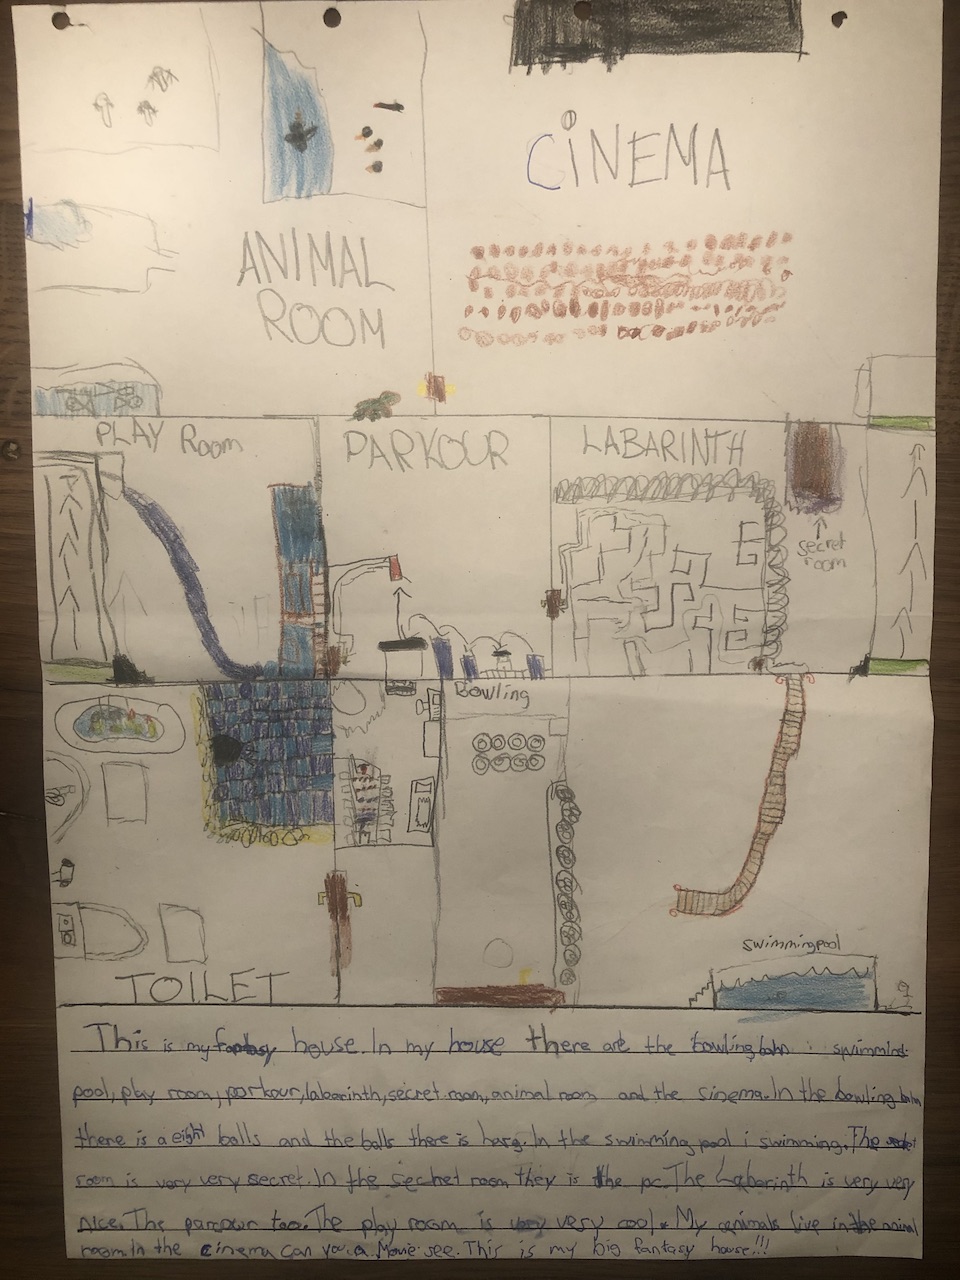 CiNEMA
ANIMAL
ROOM
PLAY Room
PARKOUR
LABARINTH
secret
room
Bowling
swimmingpool
TOILET
This is my fantasy house. In my house there are the bowlingbahn swimming
pool, play room, porkour, labarinth, secret room, animal room and the cinema. In the bowling bahn
there is a eight balls and the balls there is harg. In the swimming pool i swimming. The secret
room is very very secret. In the sechet room they is the pc. The Labarinth is very very
nice. The parcour too. The play room is very very cool. My animals live in the animal
room. In the cinema can you a Movie see. This is my big fantasy house!!!